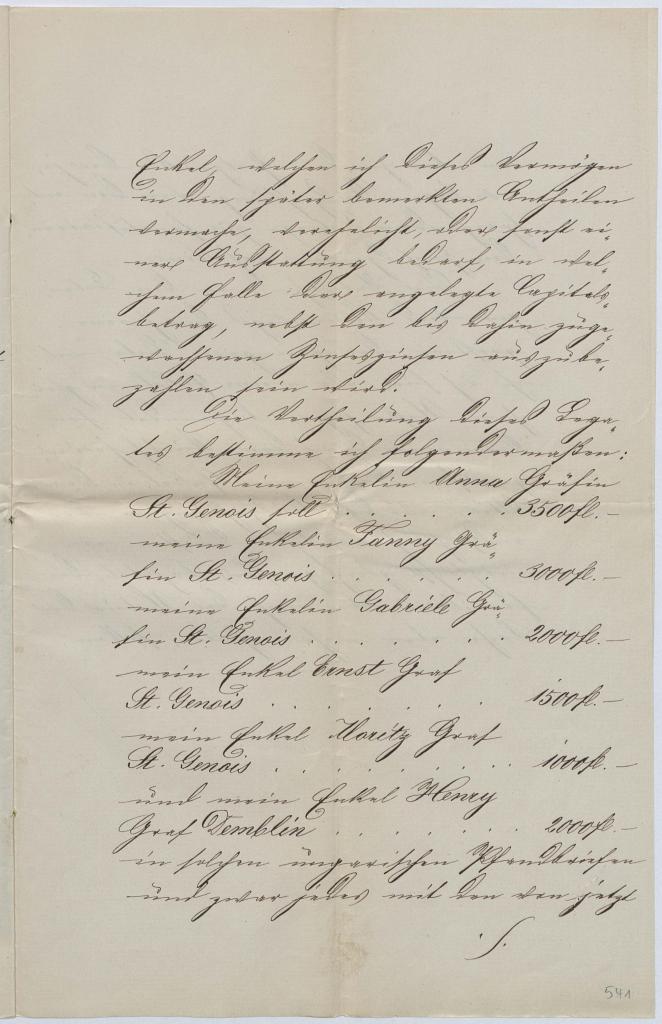 Enkel, welchen ich dieses Vermögen
in den später bemerkten Antheilen
vermache, verehelicht, oder sonst ei-
ner Ausstattung bedarf, in wel-
chem Falle der angelegte Capitals-
betrag, nebst den bis dahin zuge-
wachsenen Zinseszinsen auszube-
zahlen sein wird.
Die Vertheilung dieses Lega-
tes bestimme ich folgendermaßen:
Meine Enkelin Anna Gräfin
St. Genois soll . . . . . . 3500fl. –
meine Enkelin Fanny Grä-
fin St. Genois . . . . . . 3000fl. –
meine Enkelin Gabriele Grä-
fin St. Genois . . . . . . . 2000fl. –
mein Enkel Ernst Graf
St. Genois . . . . . . . 1500fl. –
mein Enkel Moritz Graf
St. Genois . . . . . . . . 1000fl. –
und mein Enkel Henry
Graf Demblin . . . . . . . 2000fl. –
in solchen ungarischen Pfandbriefen
und zwar jedes mit den von jetzt
541